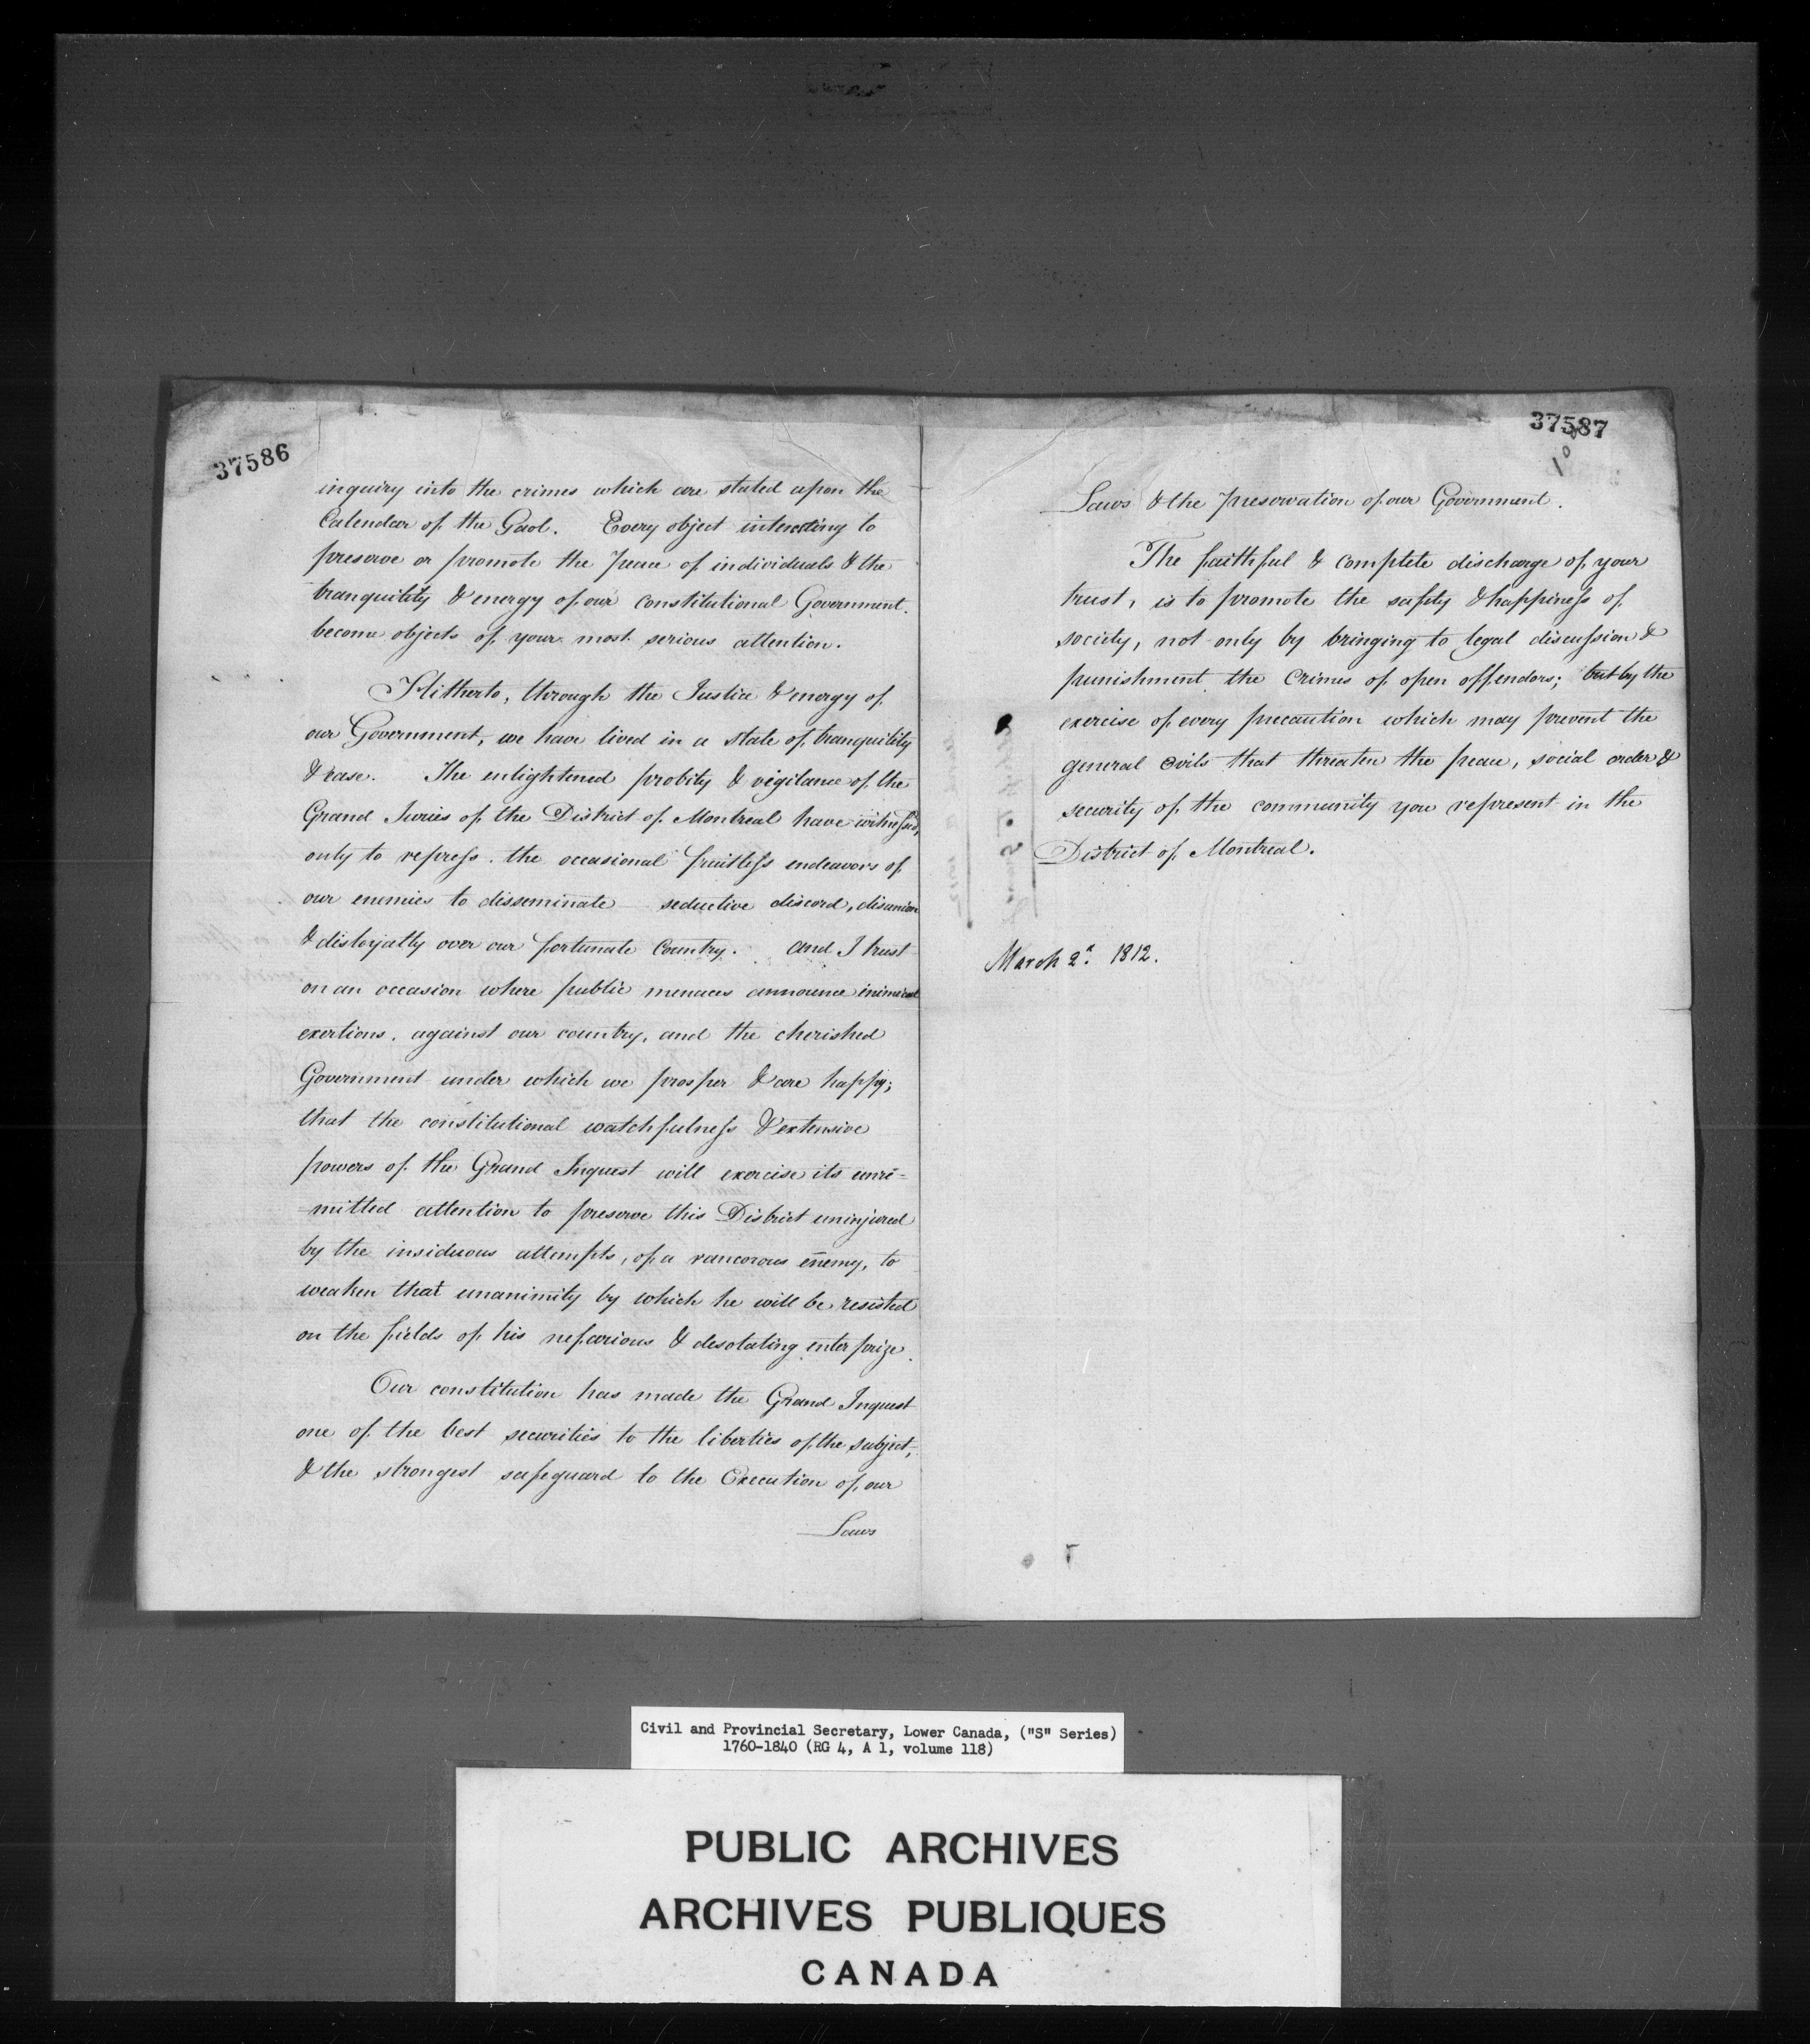 37586
inquiry into the crimes which are stated upon the
Calendar of the Gaol. Every object interesting to
preserve or promote the peace of individuals & the
tranquility & energy of our constitutional Government.
become objects of your most serious attention.
Hitherto, through the Justice & energy of
our Government, we have lived in a state of tranquility
& ease. The enlightened probity & vigilance of the
Grand Juries of the District of Montreal have witnessed,
only to repress. the occasional fruitless endeavors of
our enemies to disseminate seductive discord, disunion
& disloyalty over our fortunate Country. and I trust
on an occasion where public menaces announce inimical
exertions. against our country, and the cherished
Government under which we prosper & are happy;
that the constitutional watchfulness & extensive
powers of the Grand Inquest will exercise its unre=
mitted attention to preserve this District uninjured
by the insiduous attempts, of a rancorous enemy, to
weaken that unanimity by which he will be resisted
on the fields of his nefarious & desolating enterprize.
Our constitution has made the Grand Inquest
one of the best securities to the liberties of the subject,
& the strongest safeguard to the Execution of our
Laws
37587
Laws & the preservation of our Government.
The faithful & complete discharge of your
trust, is to promote the safety & happiness of
society, not only by bringing to legal discussion &
punishment the Crimes of open offendors; but by the
exercise of every precaution which may prevent the
general evils that threaten the peace, social order &
security of the community you represent in the
District of Montreal.
March 2d. 1812.
Civil and Provincial Secretary, Lower Canada, ("S" Series)
1760-1840 (RG 4, A 1, volume 118)
PUBLIC ARCHIVES
ARCHIVES PUBLIQUES
CANADA